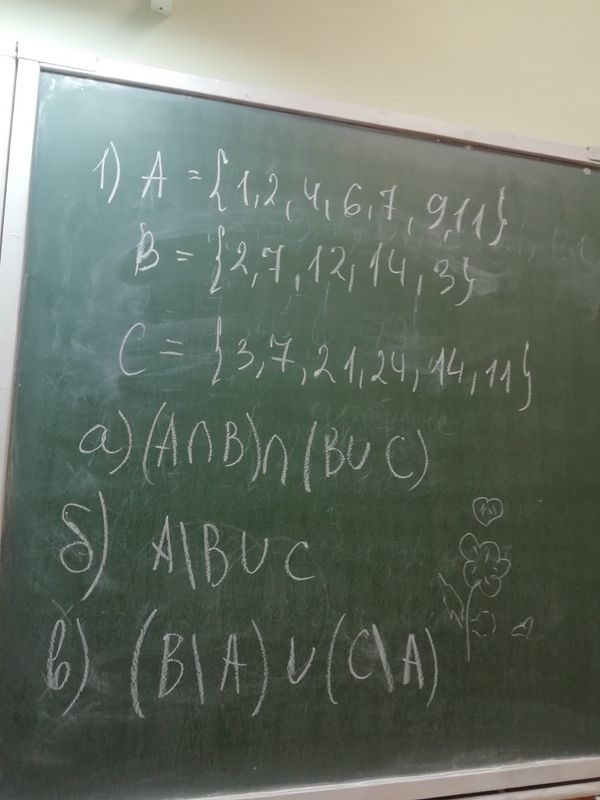 1) A = {1, 2, 4, 6, 7, 9, 11}
B = {2, 7, 12, 14, 3}
C = {3, 7, 21, 24, 14, 11}
а) (A∩B)∩(B∪C)
б) A\B∪C
в) (B\A)∪(C\A)